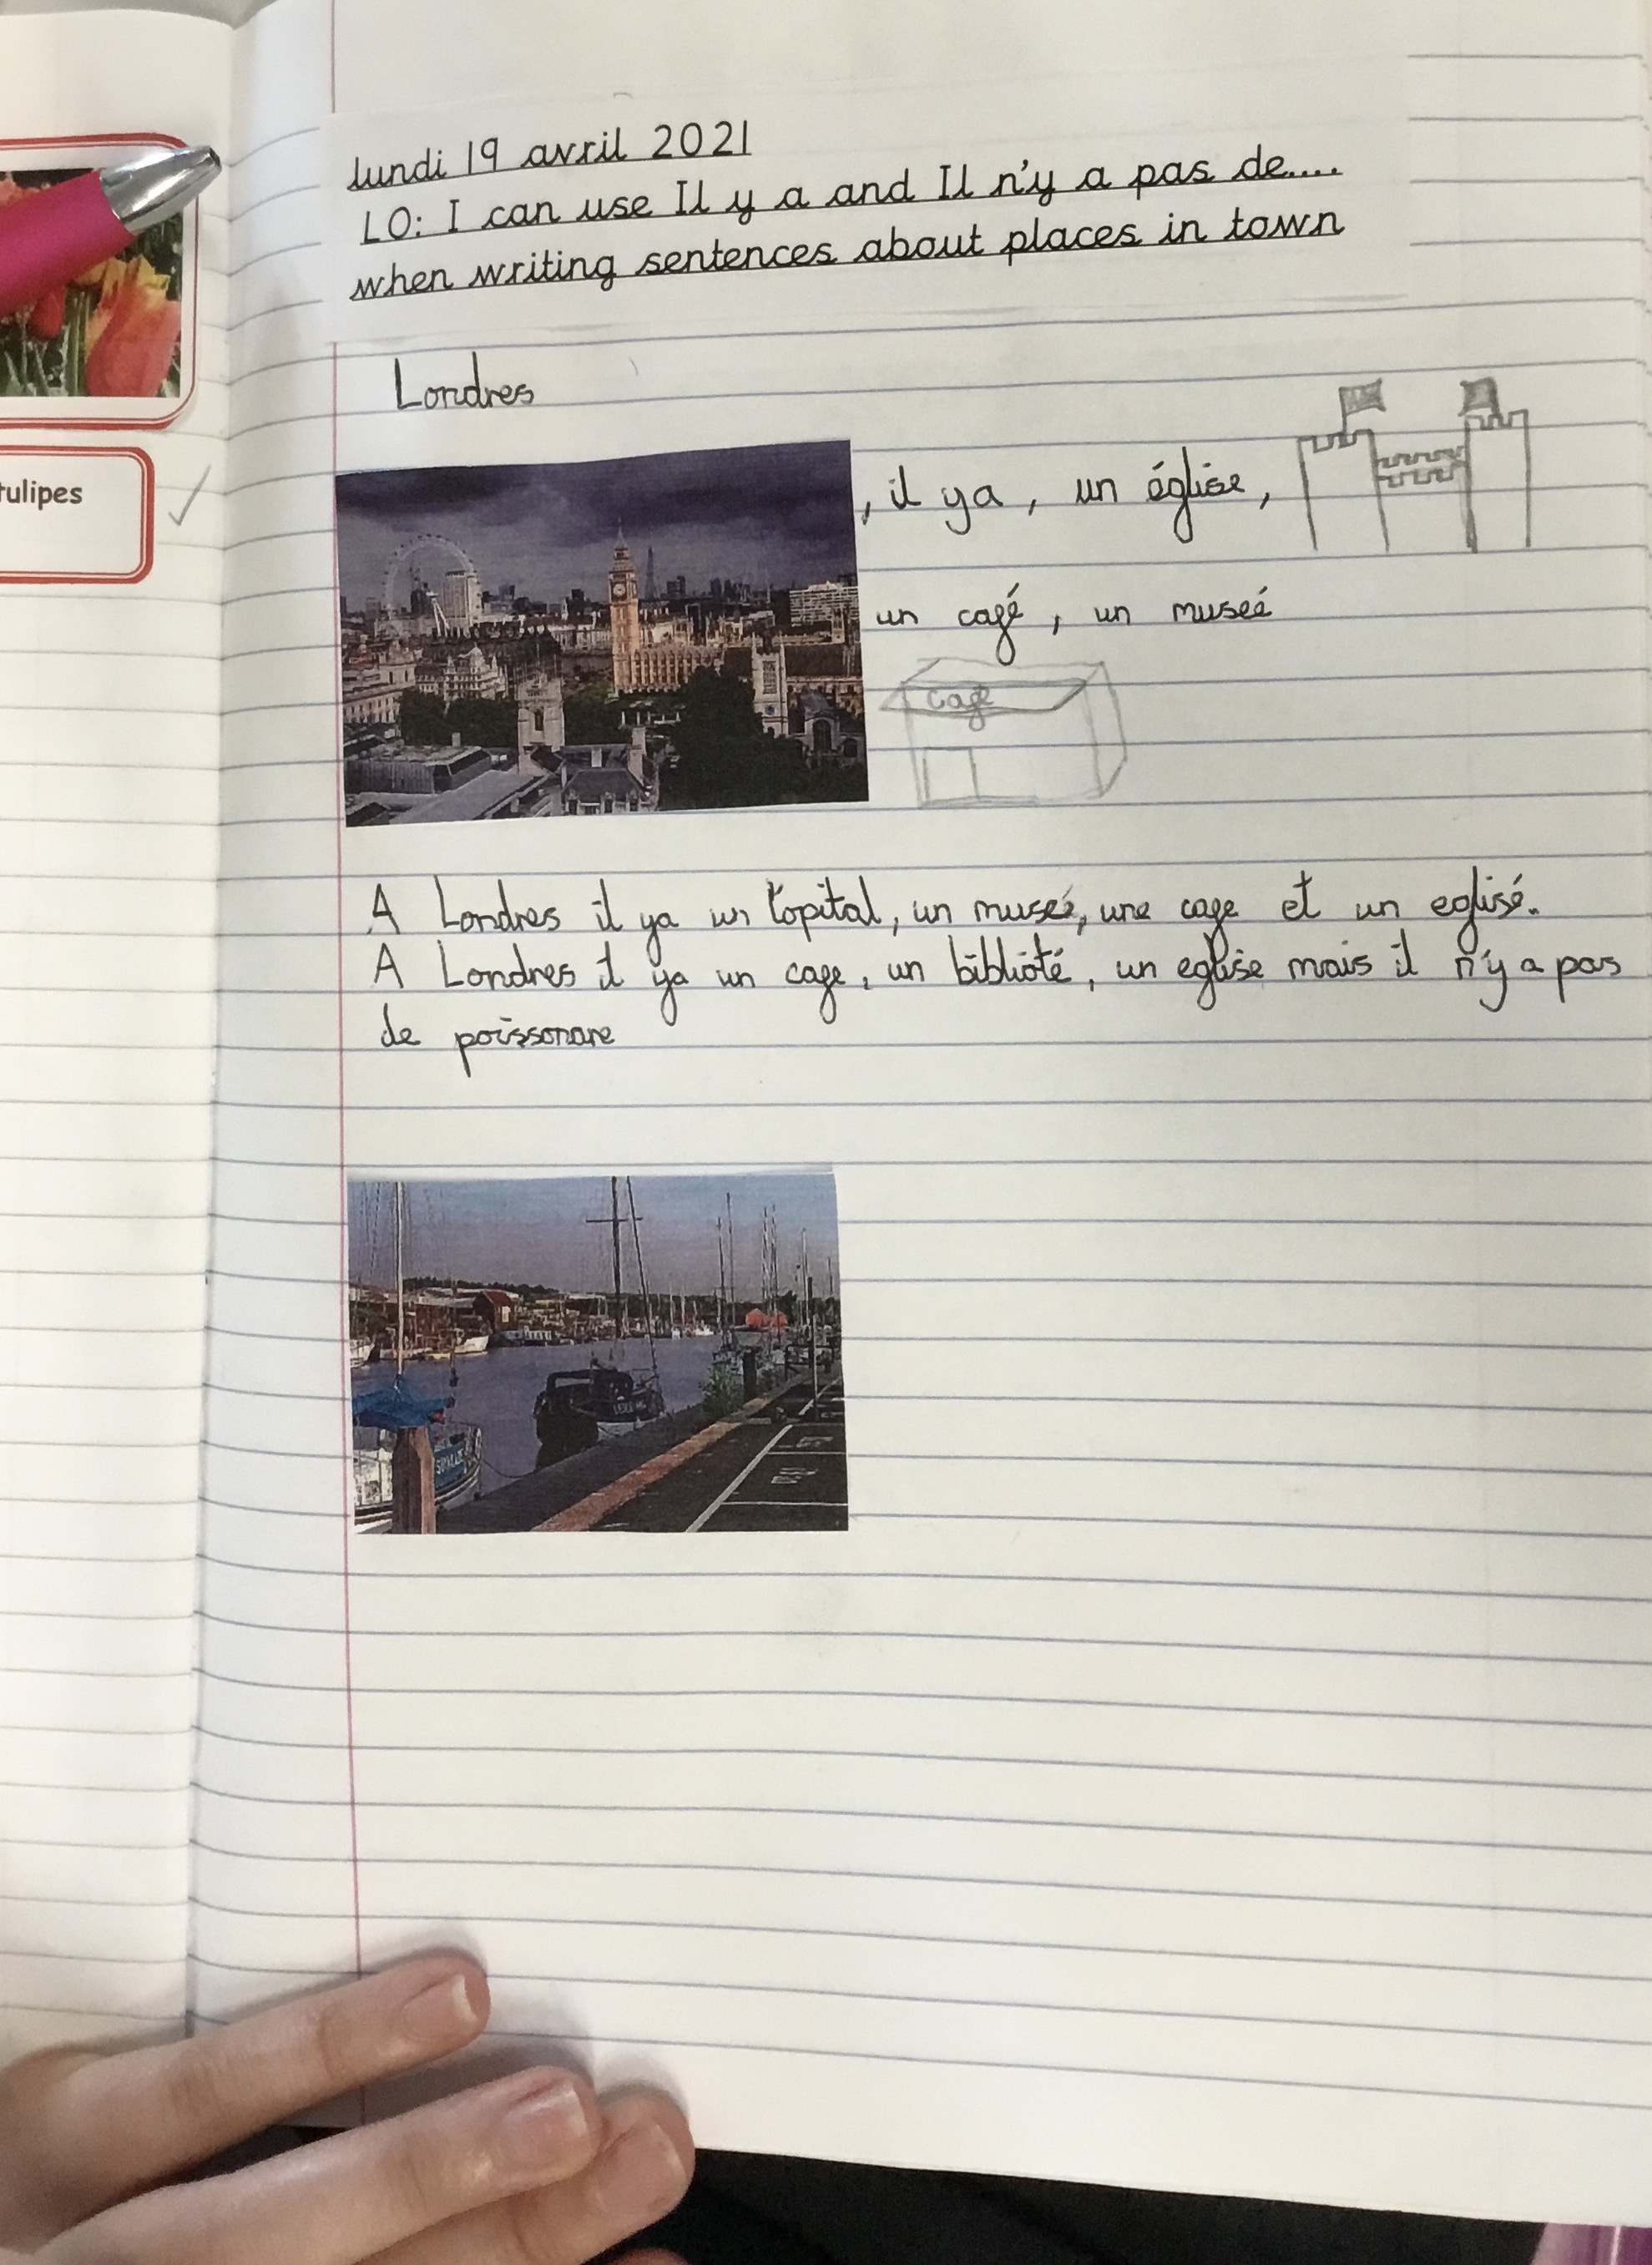 lundi 19 avril 2021
LO: I can use Il y a and Il n'y a pas de....
when writing sentences about places in town
tulipes
Londres
, il ya, un église,
un café, un museé
café
A Londres il ya un l'opital, un museé, une cafe et un eglisé.
A Londres il ya un cafe, un biblioté, un eglise mais il n'y a pas
de poissonare